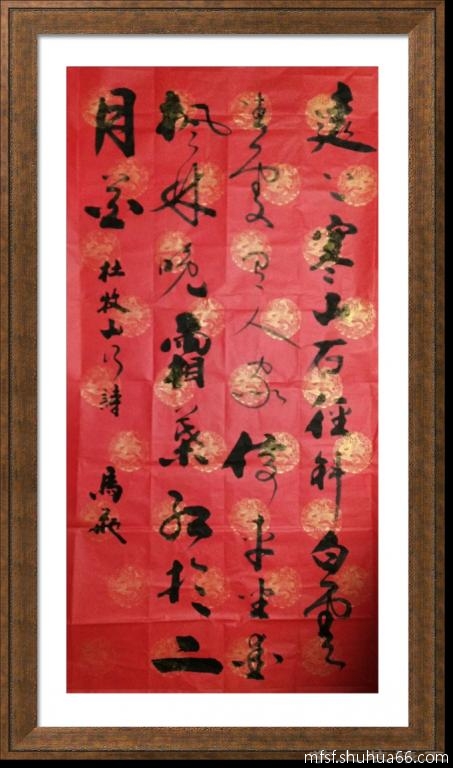 遠上寒山石徑斜白雲
處有人家停车坐愛
楓林晚霜葉紅於二
月花 杜牧山行詩 馬飛
mfsf.shuhua66.com